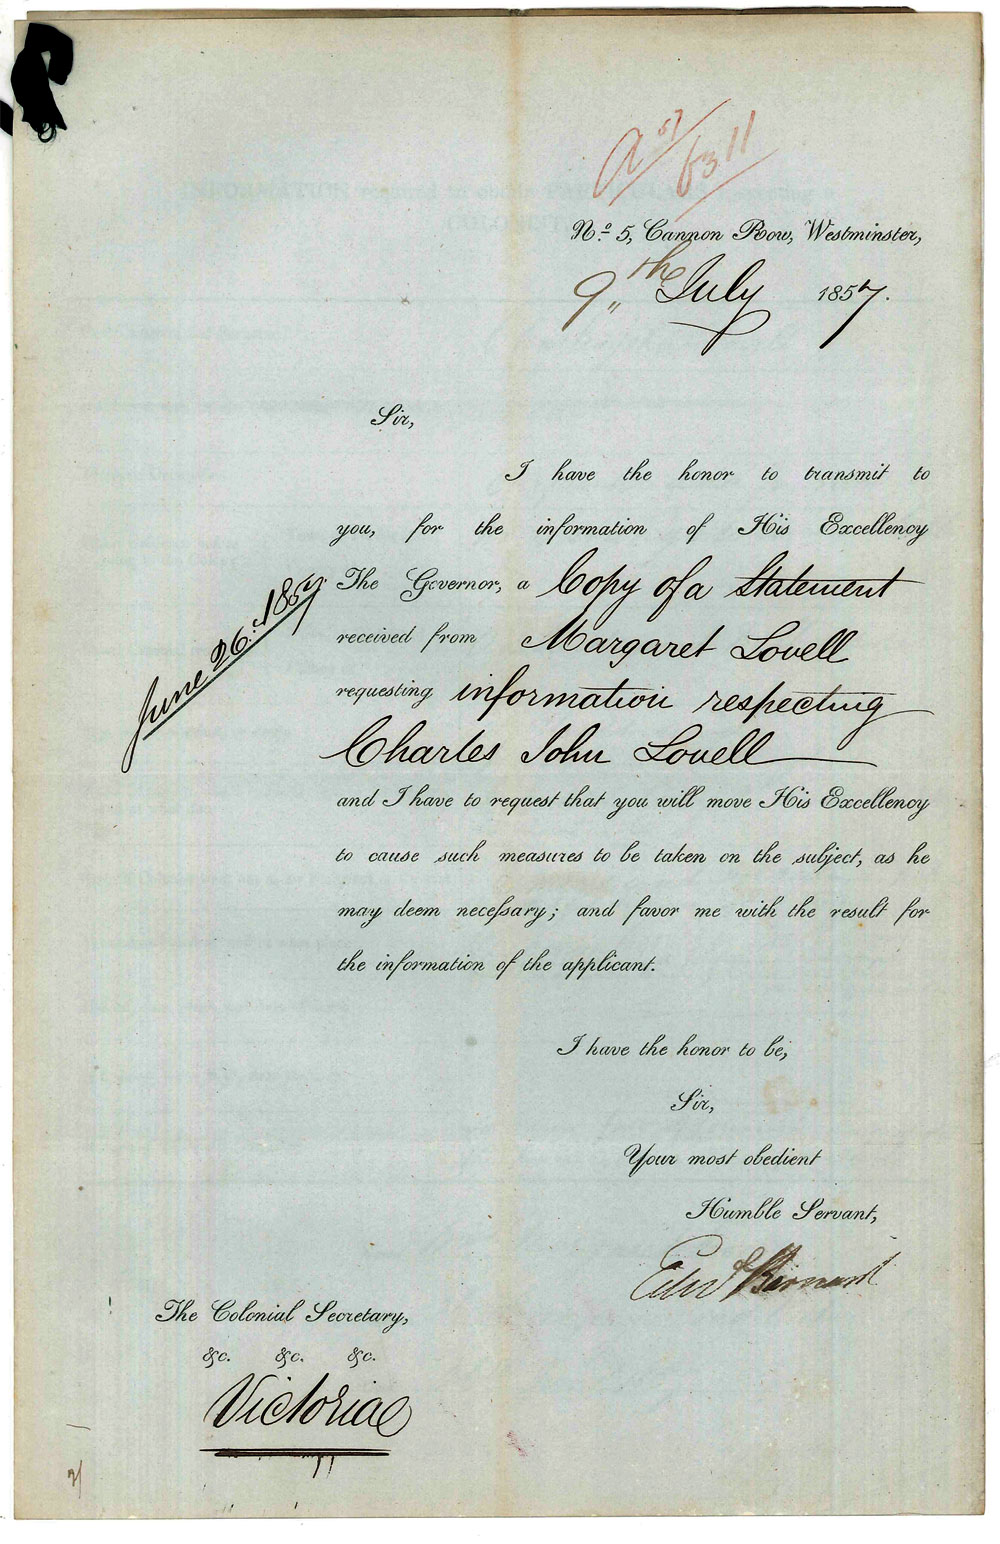 a 57/6311
No. 5, Cannon Row, Westminster,
9th July 1857.
Sir,
I have the honor to transmit to
you, for the information of His Excellency
June 26. 1857
The Governor, a Copy of a Statement
received from Margaret Lovell
requesting information respecting
Charles John Lovell
and I have to request that you will move His Excellency
to cause such measures to be taken on the subject, as he
may deem neceſsary; and favor me with the result for
the information of the applicant.
I have the honor to be,
Sir,
Your most obedient
Humble Servant,
Edwd Barnard
The Colonial Secretary,
&c. &c. &c.
Victoria